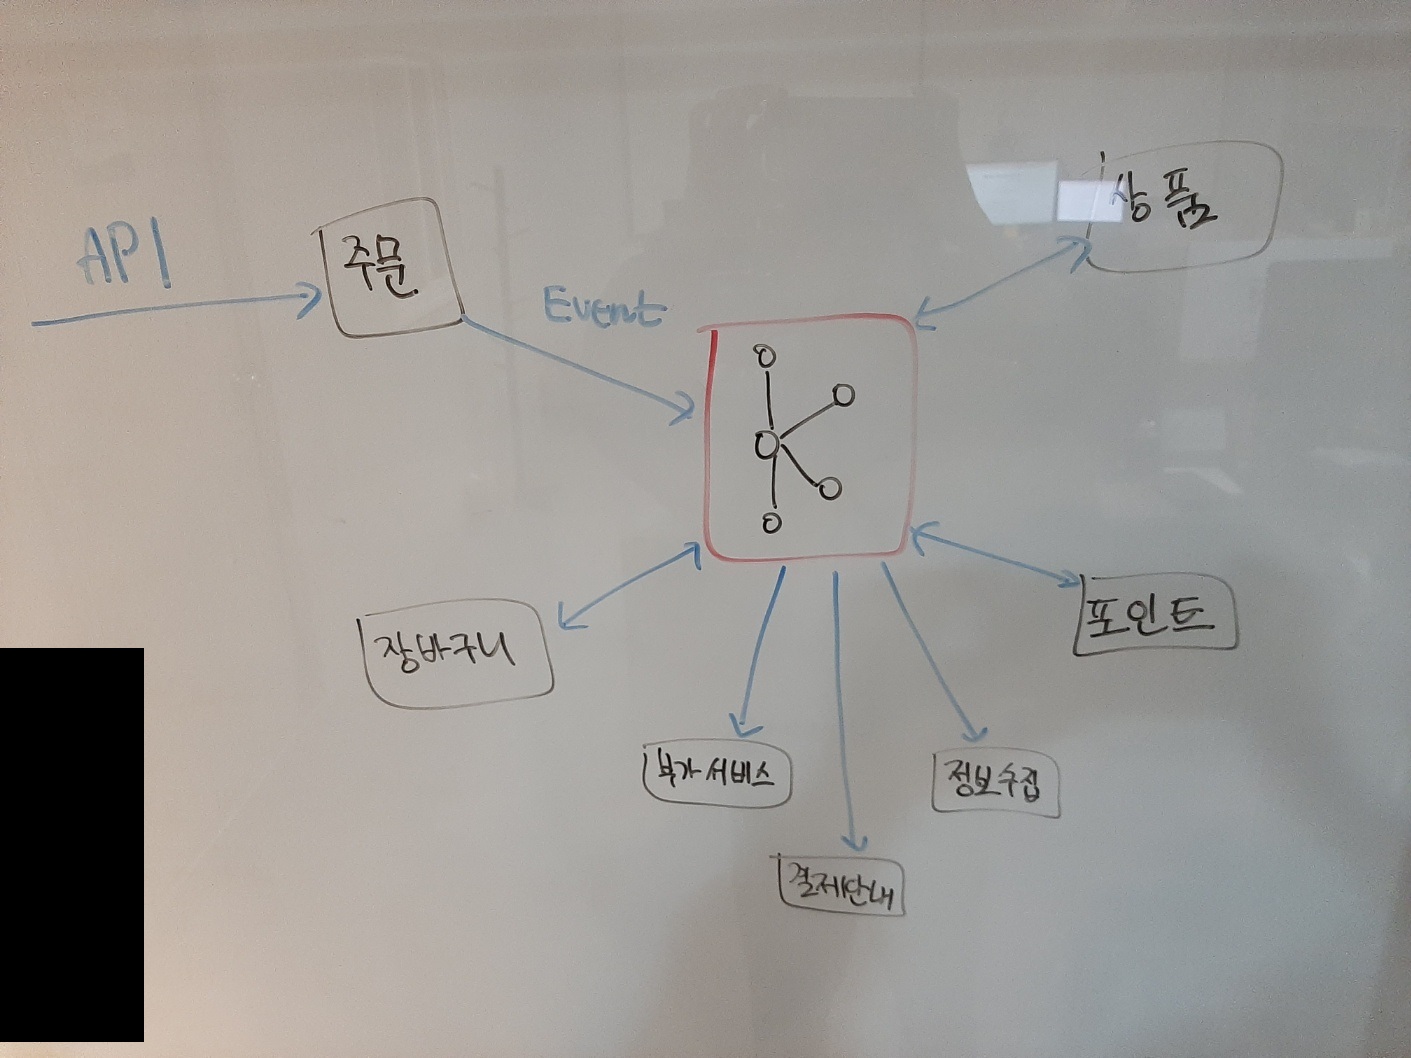 API
주문
Event
상품
장바구니
포인트
부가서비스
정보수집
결제안내